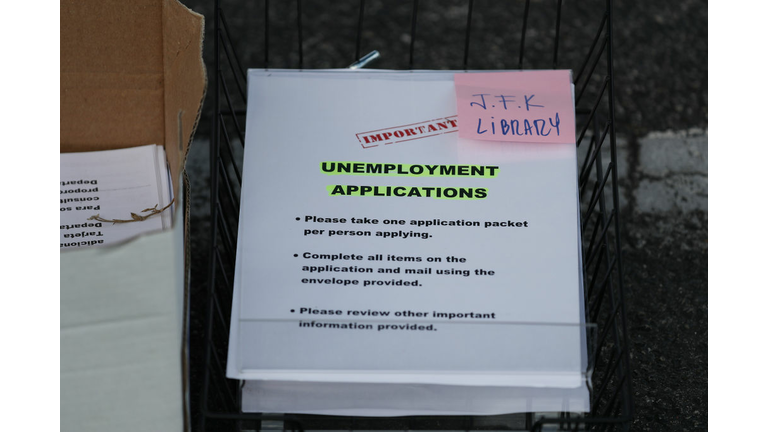 J.F.K
LIBRARY
IMPORTANT
UNEMPLOYMENT
APPLICATIONS
• Please take one application packet
per person applying.
• Complete all items on the
application and mail using the
envelope provided.
• Please review other important
information provided.
adiciona
Tarjeta
Departa
Para so
consult
propor
Departa